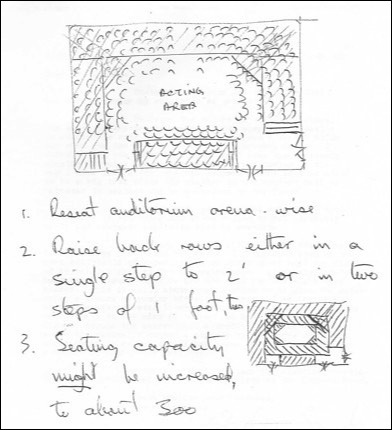 ACTING
AREA
1. Reseat auditorium arena-wise
2. Raise back rows either in a
single step to 2' or in two
steps of 1 foot, thus
3. Seating capacity
might be increased,
to about 300